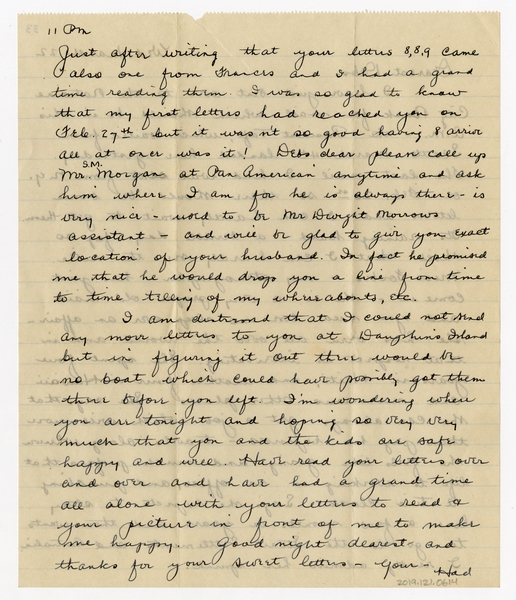 11 PM
Just after writing that your letters 8,8,9 came
also one from Francis and I had a grand
time reading them. I was so glad to know
that my first letters had reached you on
Feb. 27th but it wasn't so good having 8 arrive
all at once was it! Debs dear please call up
Mr. S.M. Morgan at Pan American anytime and ask
him where I am for he is always there - is
very nice - used to be Mr Dwight Morrows
assistant - and will be glad to give you exact
location of your husband. In fact he promised
me that he would drop you a line from time
to time telling of my whereabouts, etc.
I am distressed that I could not send
any more letters to you at Dauphin's Island
but in figuring it out there would be
no boat which could have possibly got them
there before you left. I'm wondering where
you are tonight and hoping so very very
much that you and the kids are safe
happy and well. Have read your letters over
and over and have had a grand time
all alone with your letters to read &
your picture in front of me to make
me happy. Good night dearest and
thanks for your sweet letters - Your - Had
2019.121.0614